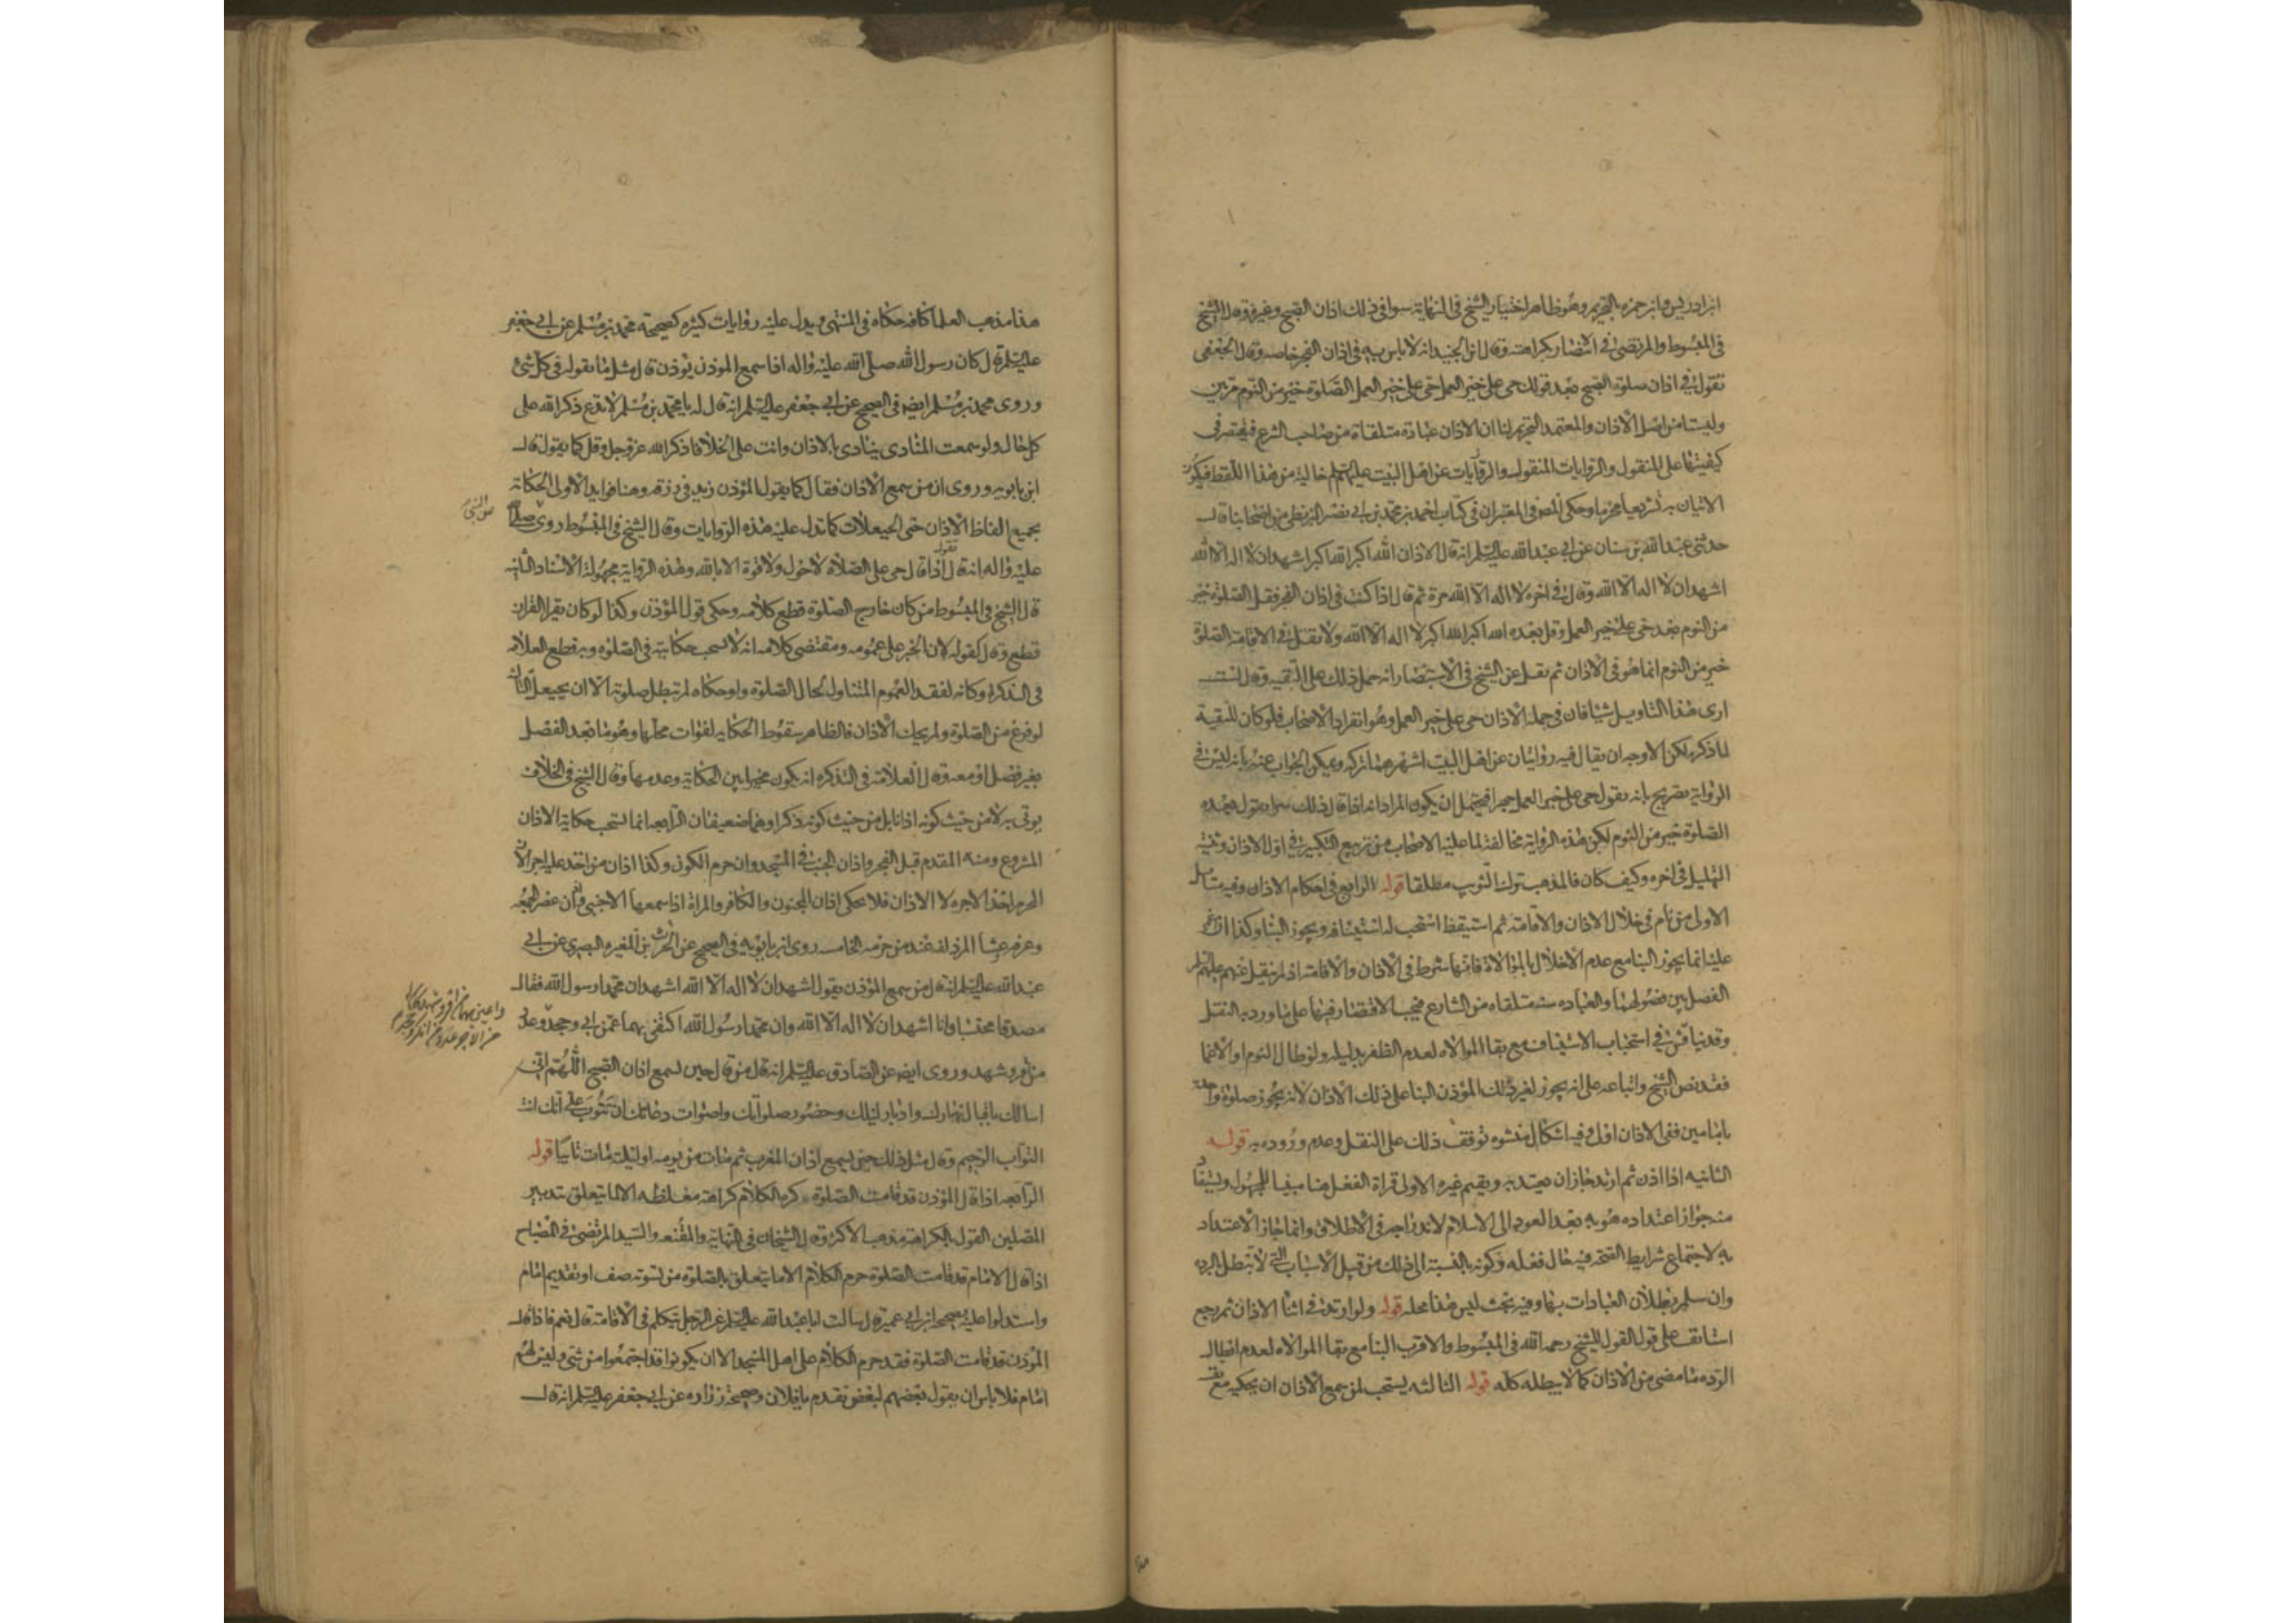 ابن ادريس وابن حمزه بالتحريم وهو ظاهر اختيار الشيخ في النهاية سوا في ذلك اذان الصبح وغيره وقال الشيخ
في المبسوط والمرتضى في الانتصار بكراهته وقال ابن الجنيد انه لا باس به في اذان الفجر خاصه وقال الجعفي
تقول في اذان صلوة الصبح بعد قولك حي على خير العمل حي على خير العمل الصلوة خير من النوم مرتين
وليستا من اصل الاذان والمعتمد التحريم لنا ان الاذان عبادة متلقاة من صاحب الشرع فيقتصر في
كيفيتها على المنقول والروايات المنقوله عن اهل البيت عليهم خالية من هذا اللفظ فيكون
الاتيان به تشريعا محرما وحكى المص في المعتبر ان في كتاب احمد بن محمد بن ابي نصر البزنطي من اصحابنا قال
حدثني عبد الله بن سنان عن ابي عبد الله عليه السلم انه قال الاذان الله اكبر الله اكبر اشهد ان لا اله الا الله
اشهد ان لا اله الا الله وقال في اخره لا اله الا الله مرة ثم قال اذا كنت في اذان الفجر فقل الصلوة خير
من النوم بعد حي على خير العمل وقل بعده الله اكبر الله اكبر لا اله الا الله ولا تقل في الاقامة الصلوة
خير من النوم انما هو في الاذان ثم نقل عن الشيخ في الاستبصار انه حمل ذلك على التقيه وقال لست
ارى هذا التاويل شيئا فان في جملة الاذان حي على خير العمل وهو انفراد الاصحاب فلو كان للتقية
لما ذكره لكن الاوجه ان يقال فيه روايتان عن اهل البيت اشهرهما تركه ويمكن الجواب عنه بانه ليس في
الرواية تصريح بانه يقول حي على خير العمل جهرا فيحتمل ان يكون المراد انه اذا قال ذلك سرا يقول بعده
الصلوة خير من النوم لكن هذه الرواية مخالفة لما عليه الاصحاب من تربيع التكبير في اول الاذان وتثنية
التهليل في اخره وكيف كان فالمذهب ترك التثويب مطلقا قوله الرابع في احكام الاذان وفيه مسايل
الاولى من نام في خلال الاذان والاقامة ثم استيقظ استحب له استينافه ويجوز البنا وكذا ان اغمي
عليه انما يجوز البنا مع عدم الاخلال بالموالاة فانها شرط في الاذان والاقامة اذ لم ينقل عنهم عليهم السلم
الفصل بين فصولهما والعباده سنة متلقاه من الشارع فيجب الاقتصار فيها على ما ورد به النقل
وقد يناقش في استحباب الاستيناف مع بقا الموالاه لعدم الظفر بدليله ولو طال النوم او الاغما
فقد نص الشيخ واتباعه على انه يجوز لغير ذلك المؤذن البنا على ذلك الاذان لانه يجوز صلوة واحدة
بامامين ففي الاذان اولى وفيه اشكال منشوه توقف ذلك على النقل وعدم وروده به قوله
الثانيه اذا اذن ثم ارتد جاز ان يعتد به ويقيم غيره الاولى قراة الفعل هنا مبنيا للمجهول ويستفاد
منه جواز اعتداده هو به بعد العود الى الاسلام لاندراجه في الاطلاق وانما جاز الاعتداد
به لاجتماع شرايط الصحة فيه حال فعله وكونه بالنسبة الى ذلك من قبيل الاسباب التي لا تبطل بالرده
وان سلم بطلان العبادات بها وفيه بحث ليس هذا محله قوله ولو ارتد في اثنا الاذان ثم رجع
استانف على قول القول للشيخ رحمه الله في المبسوط والاقرب البنا مع بقا الموالاه لعدم ابطال
الرده ما مضى من الاذان كما لا يبطله كله قوله الثالثه يستحب لمن سمع الاذان ان يحكيه مع نفسه
هذا مذهب العلما كافه حكاه في المنتهى ويدل عليه روايات كثيره كصحيحة محمد بن مسلم عن ابي جعفر
عليه السلم قال كان رسول الله صلى الله عليه واله اذا سمع الموذن يؤذن قال مثل ما يقوله في كل شئ
وروى محمد بن مسلم ايضا في الصحيح عن ابي جعفر عليه السلم انه قال له يا محمد بن مسلم لا تدع ذكر الله على
كل حال ولو سمعت المنادى ينادى بالاذان وانت على الخلا فاذكر الله عز وجل وقل كما يقول قال
ابن بابويه وروى ان من سمع الاذان فقال كما يقول المؤذن زيد في رزقه وهنا فوايد الاولى الحكاية
بجميع الفاظ الاذان حتى الحيعلات كما تدل عليه هذه الروايات وقال الشيخ في المبسوط روى
عن النبي
عليه واله انه قال يقول اذا قال حي على الصلاة لا حول ولا قوة الا بالله وهذه الرواية مجهولة الاسناد الثانيه
قال الشيخ في المبسوط من كان خارج الصلوة قطع كلامه وحكى قول المؤذن وكذا لو كان يقرا القران
قطع وقال كقوله لان الخبر على عمومه ومقتضى كلامه انه لا يستحب حكايته في الصلوه وبه قطع العلامه
في التذكره وكانه لفقد العموم المتناول لحال الصلوة ولو حكاه لم تبطل صلوته الا ان يحيعل الثالثه
لو فرغ من الصلوة ولم يحك الاذان فالظاهر سقوط الحكايه لفوات محلها وهو ما بعد الفصل
بغير فصل او معه وقال العلامة في التذكره انه يكون مخيرا بين الحكاية وعدمها وقال الشيخ في الخلاف
يوتى به لا من حيث كونه اذانا بل من حيث كونه ذكرا وهما ضعيفان الرابعه انما يستحب حكاية الاذان
المشروع ومنه المقدم قبل الفجر واذان الجنب في المسجد وان حرم الكون وكذا اذان من اخذ عليه اجرا لان
المحرم اخذ الاجره لا الاذان فلا يحكى اذان المجنون والكافر والمراة اذا سمعها الاجنبي واذان عصر الجمعه
وعرفه وعشا المزدلفه عند من حرمه الخامسه روى ابن بابويه في الصحيح عن الحرث بن المغيره البصري عن ابي
عبد الله عليه السلم انه قال من سمع المؤذن يقول اشهد ان لا اله الا الله اشهد ان محمدا رسول الله فقال
مصدقا محتسبا وانا اشهد ان لا اله الا الله وان محمدا رسول الله اكتفي بهما عمن ابى وجحد
من اقر وشهد وروى ايضا عن الصادق عليه السلم انه قال من قال حين يسمع اذان الصبح اللهم اني
اسالك باقبال نهارك وادبار ليلك وحضور صلواتك واصوات دعاتك ان تتوب علي انك انت
التواب الرحيم وقال مثل ذلك حين يسمع اذان المغرب ثم مات من يومه او ليلته مات تائبا قوله
الرابعه اذا قال المؤذن قد قامت الصلوة كره الكلام كراهة مغلظه الا ما يتعلق بتدبير
المصلين القول بالكراهة مذهب الاكثر وقال الشيخان في النهاية والمقنعه والسيد المرتضى في المصباح
اذا قال الامام قد قامت الصلوة حرم الكلام الا ما يتعلق بالصلوه من تسوية صف او تقديم امام
واستدلوا عليه بصحيحة ابن ابي عمير قال سالت ابا عبد الله عليه السلم عن الرجل يتكلم في الاقامة قال نعم فاذا قال
المؤذن قد قامت الصلوة فقد حرم الكلام على اهل المسجد الا ان يكونوا قد اجتمعوا من شتى وليس لهم
امام فلا باس ان يقول بعضهم لبعض تقدم يا فلان وصحيحة زراره عن ابي جعفر عليه السلم انه قال